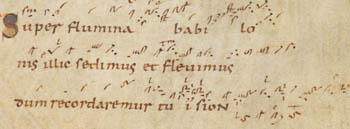 Super flumina babi lo
nis illic sedimus et flevimus
dum recordaremur tu i sion